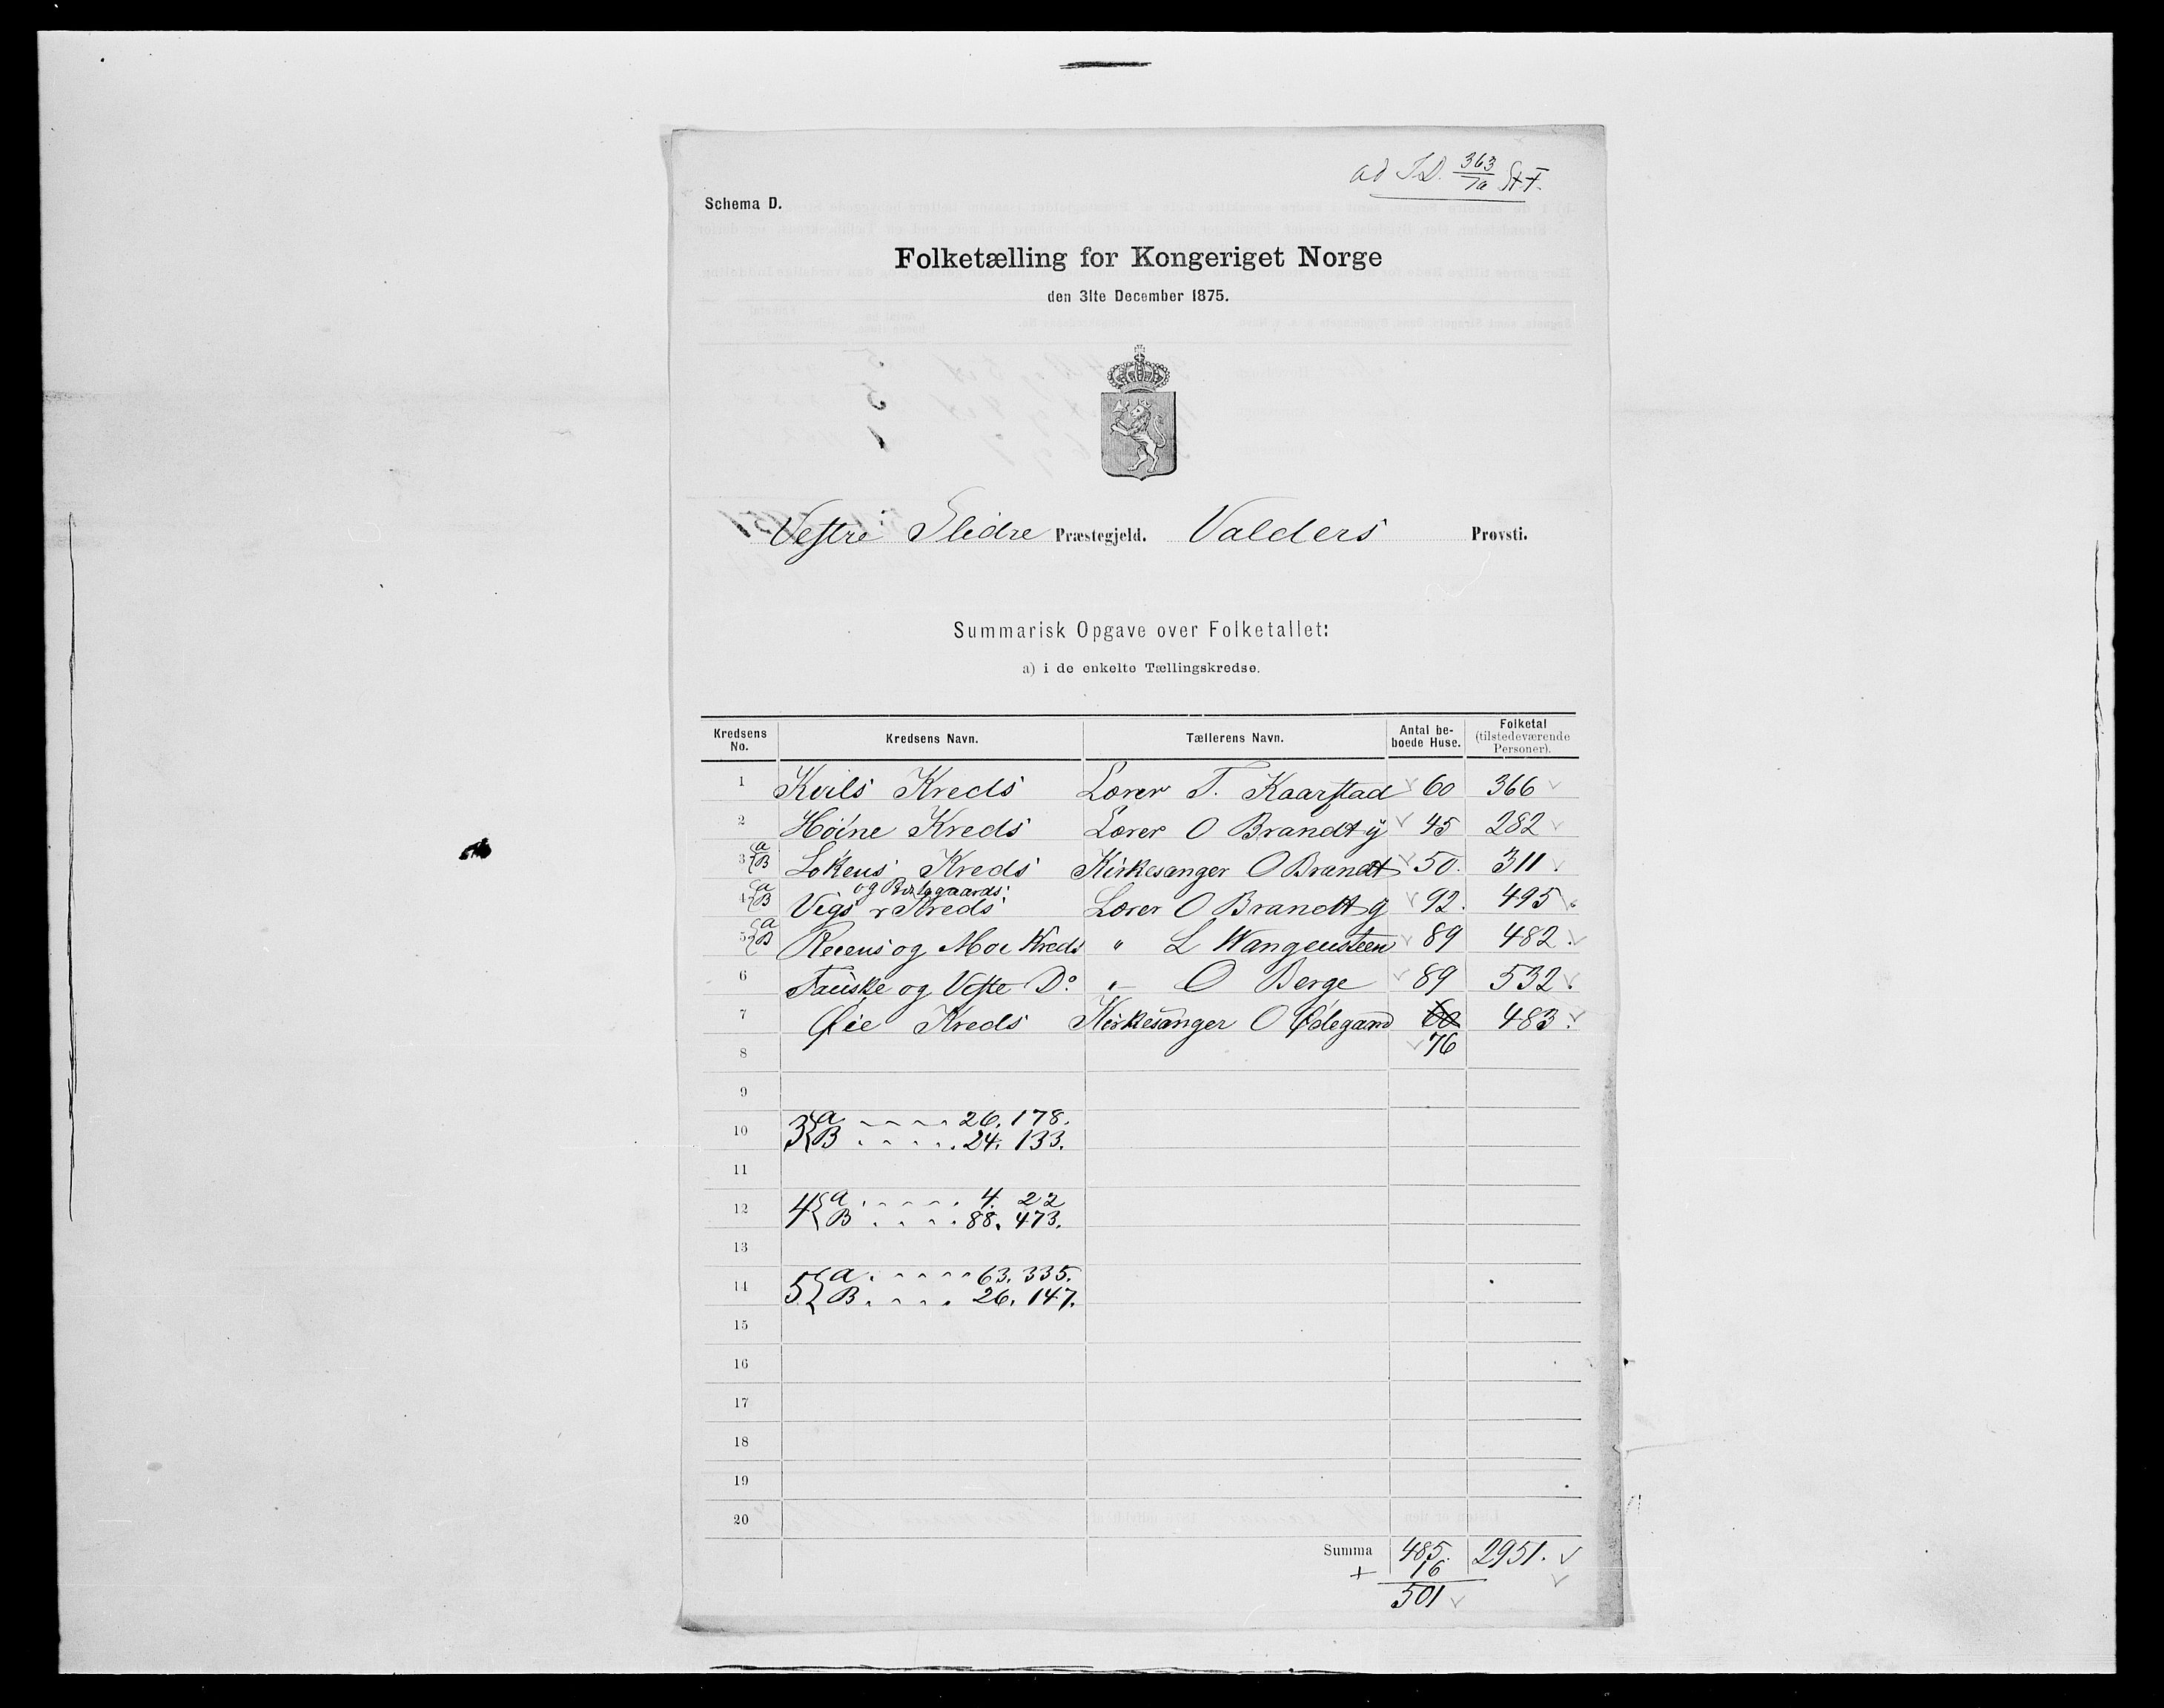 ad I.D. 363/7a St. F.
Schema D.
Folketælling for Kongeriget Norge
den 31te December 1875.
Vestre Slidre Præstegjeld. Valders Provsti.
Summarisk Opgave over Folketallet:
a) i de enkelte Tællingskredse.
Kredsens No. Kredsens Navn. Tællerens Navn. Antal beboede Huse. Folketal (tilstedeværende Personer).
1 Kvils Kreds Lærer T. Kaarstad 60 366
2 Høine Kreds Lærer O Brandt y 45 282
3 {a B Lokens Kreds Kirkesanger O Brandt 50. 311.
4 {a B Vigs Kreds Lærer O Brandt y 92. 495.
5 {a B og Moe Kreds " L Wangensteen 89 482.
6 Fauske og Do. " O Berge 89 532.
7 Øie Kreds Kirkesanger O Ødegard 60 483.
8 76
9
10 3 {a 26. 178.
B 24. 133.
11
12 4 {a 4. 22
B 88. 473.
13
14 5 {a 63. 335.
B 26. 147.
15
16
17
18
19
20
Summa 485. 2951.
+ 16
501